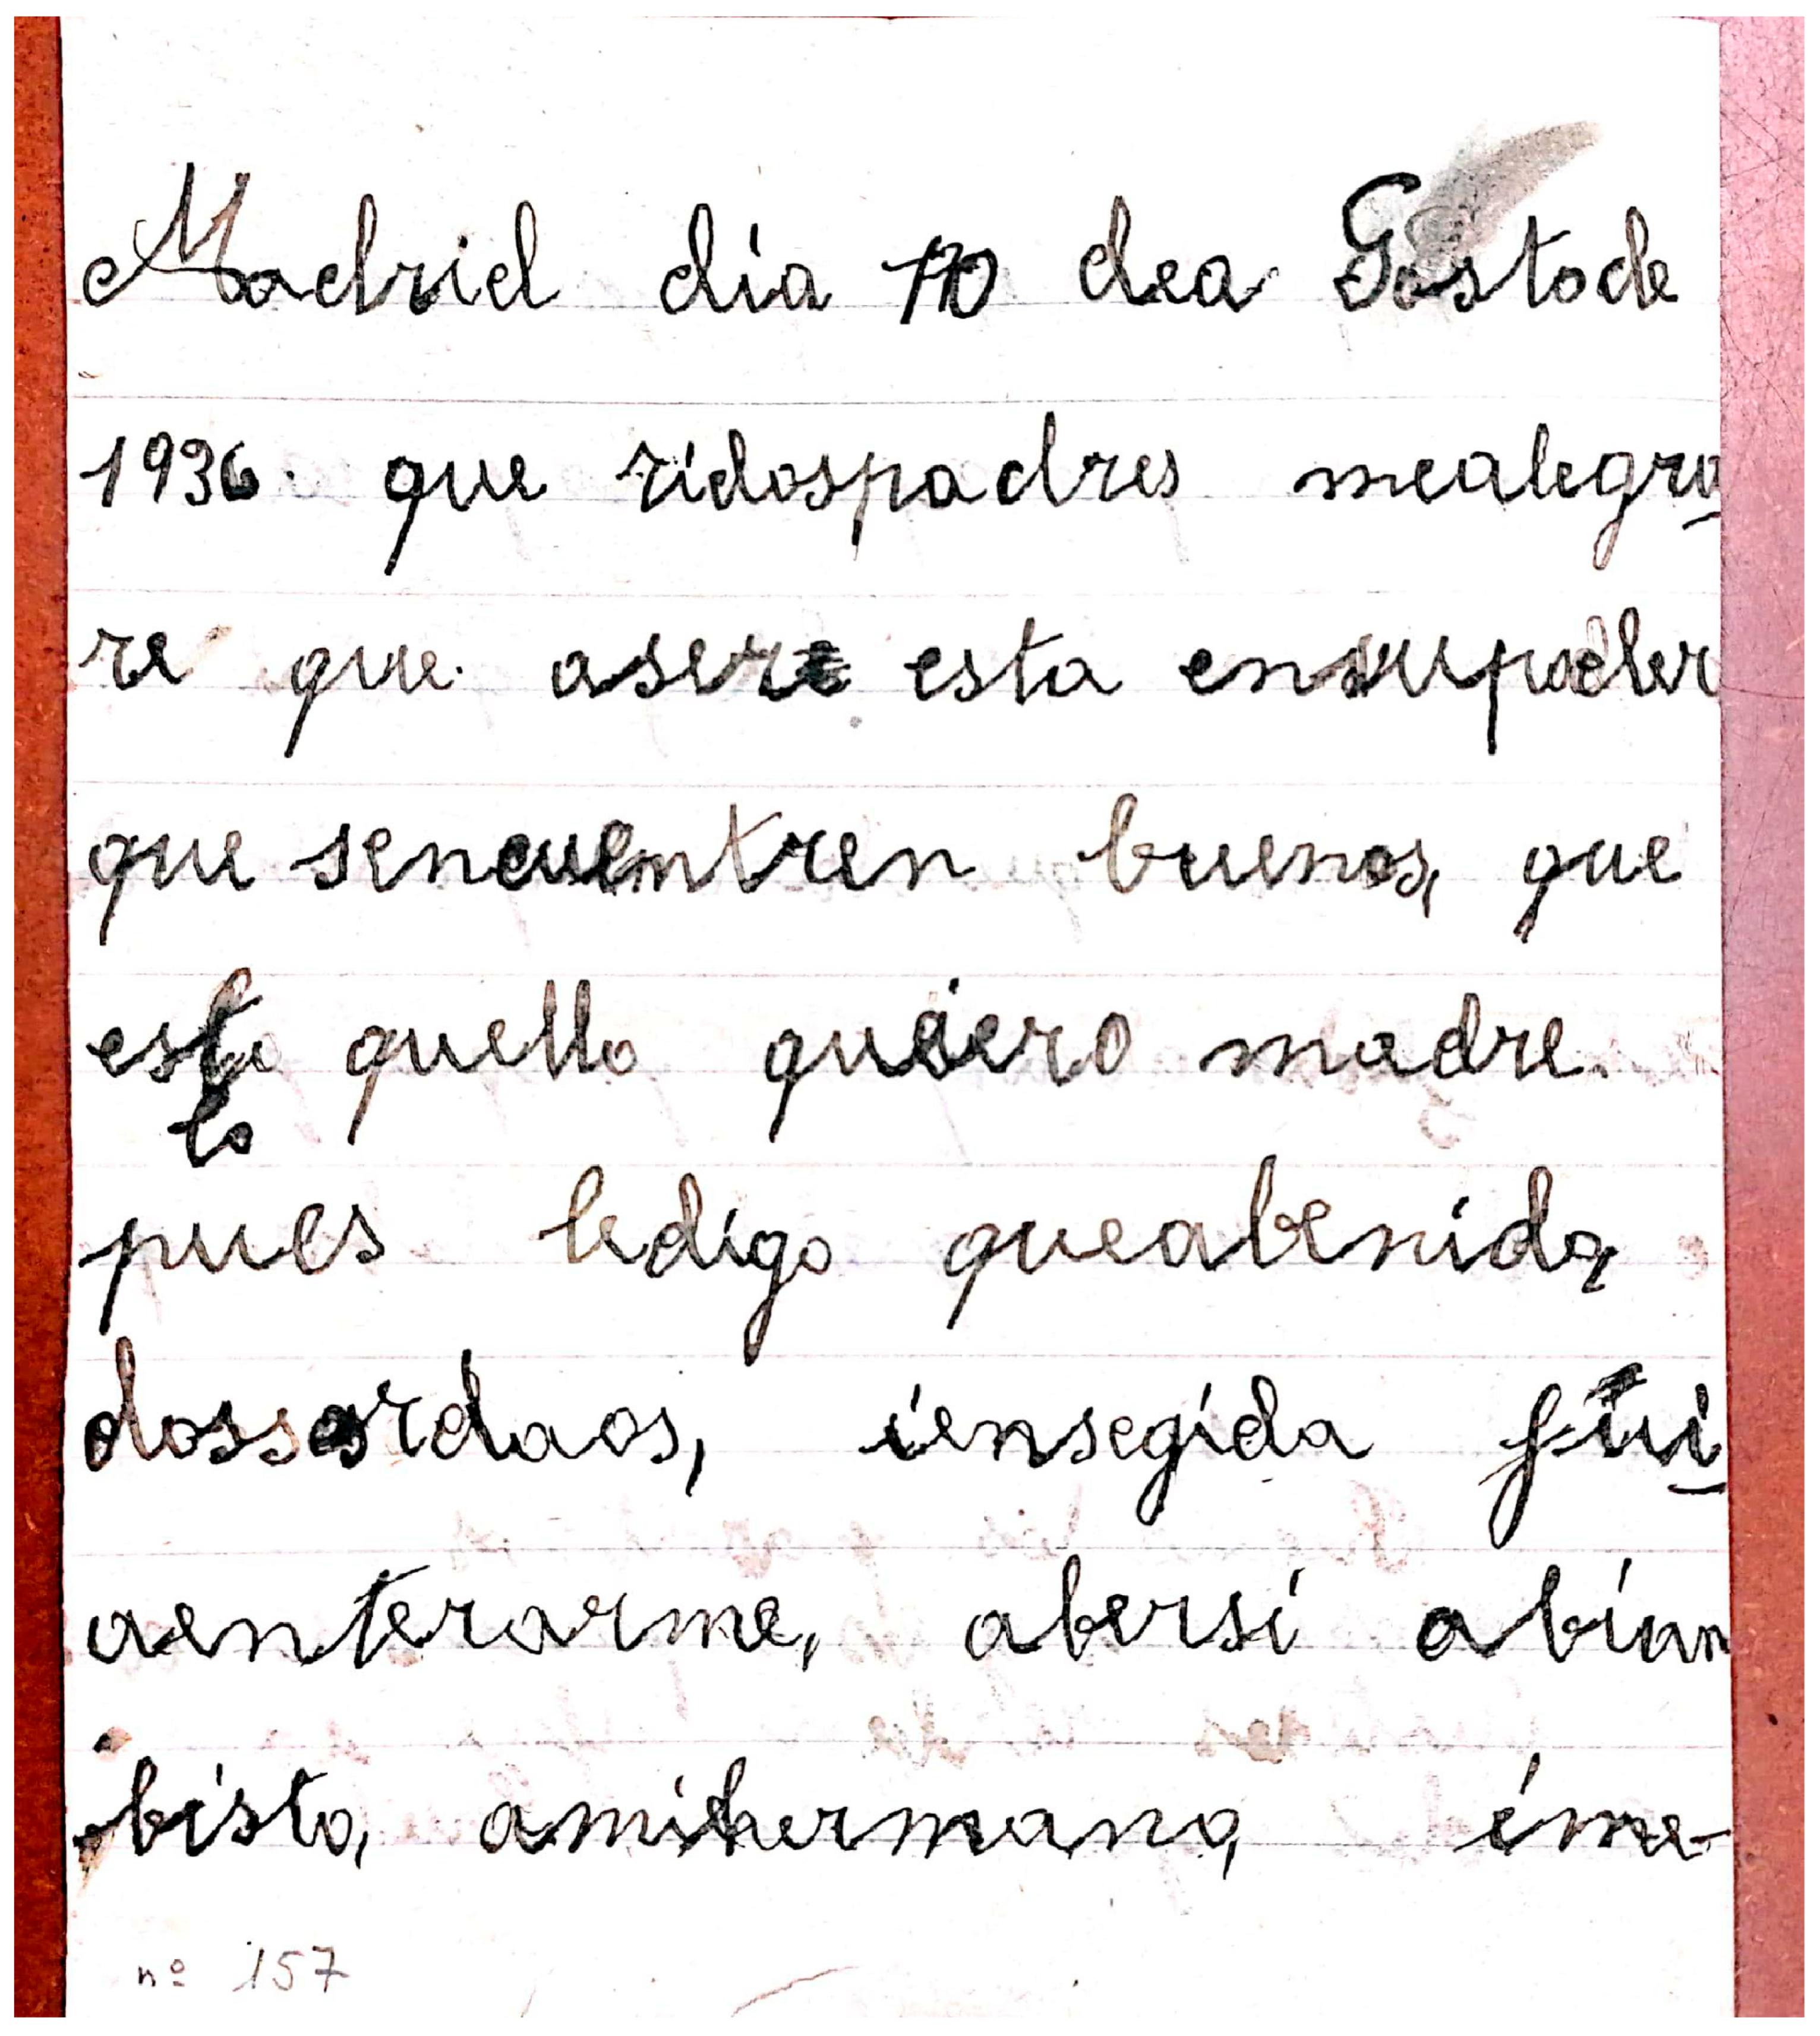 Madrid día 10 dea Gostode
1936. que ridospadres mealegra
re que. asere esta ensupoder
que sencuentren buenos, que
esto quello quiero madre.
to
pues ledígo queabenido,
dossordaos, íensegída fui
aenterarme, abersí abían
bísto, amihermano, íme-
nº 157